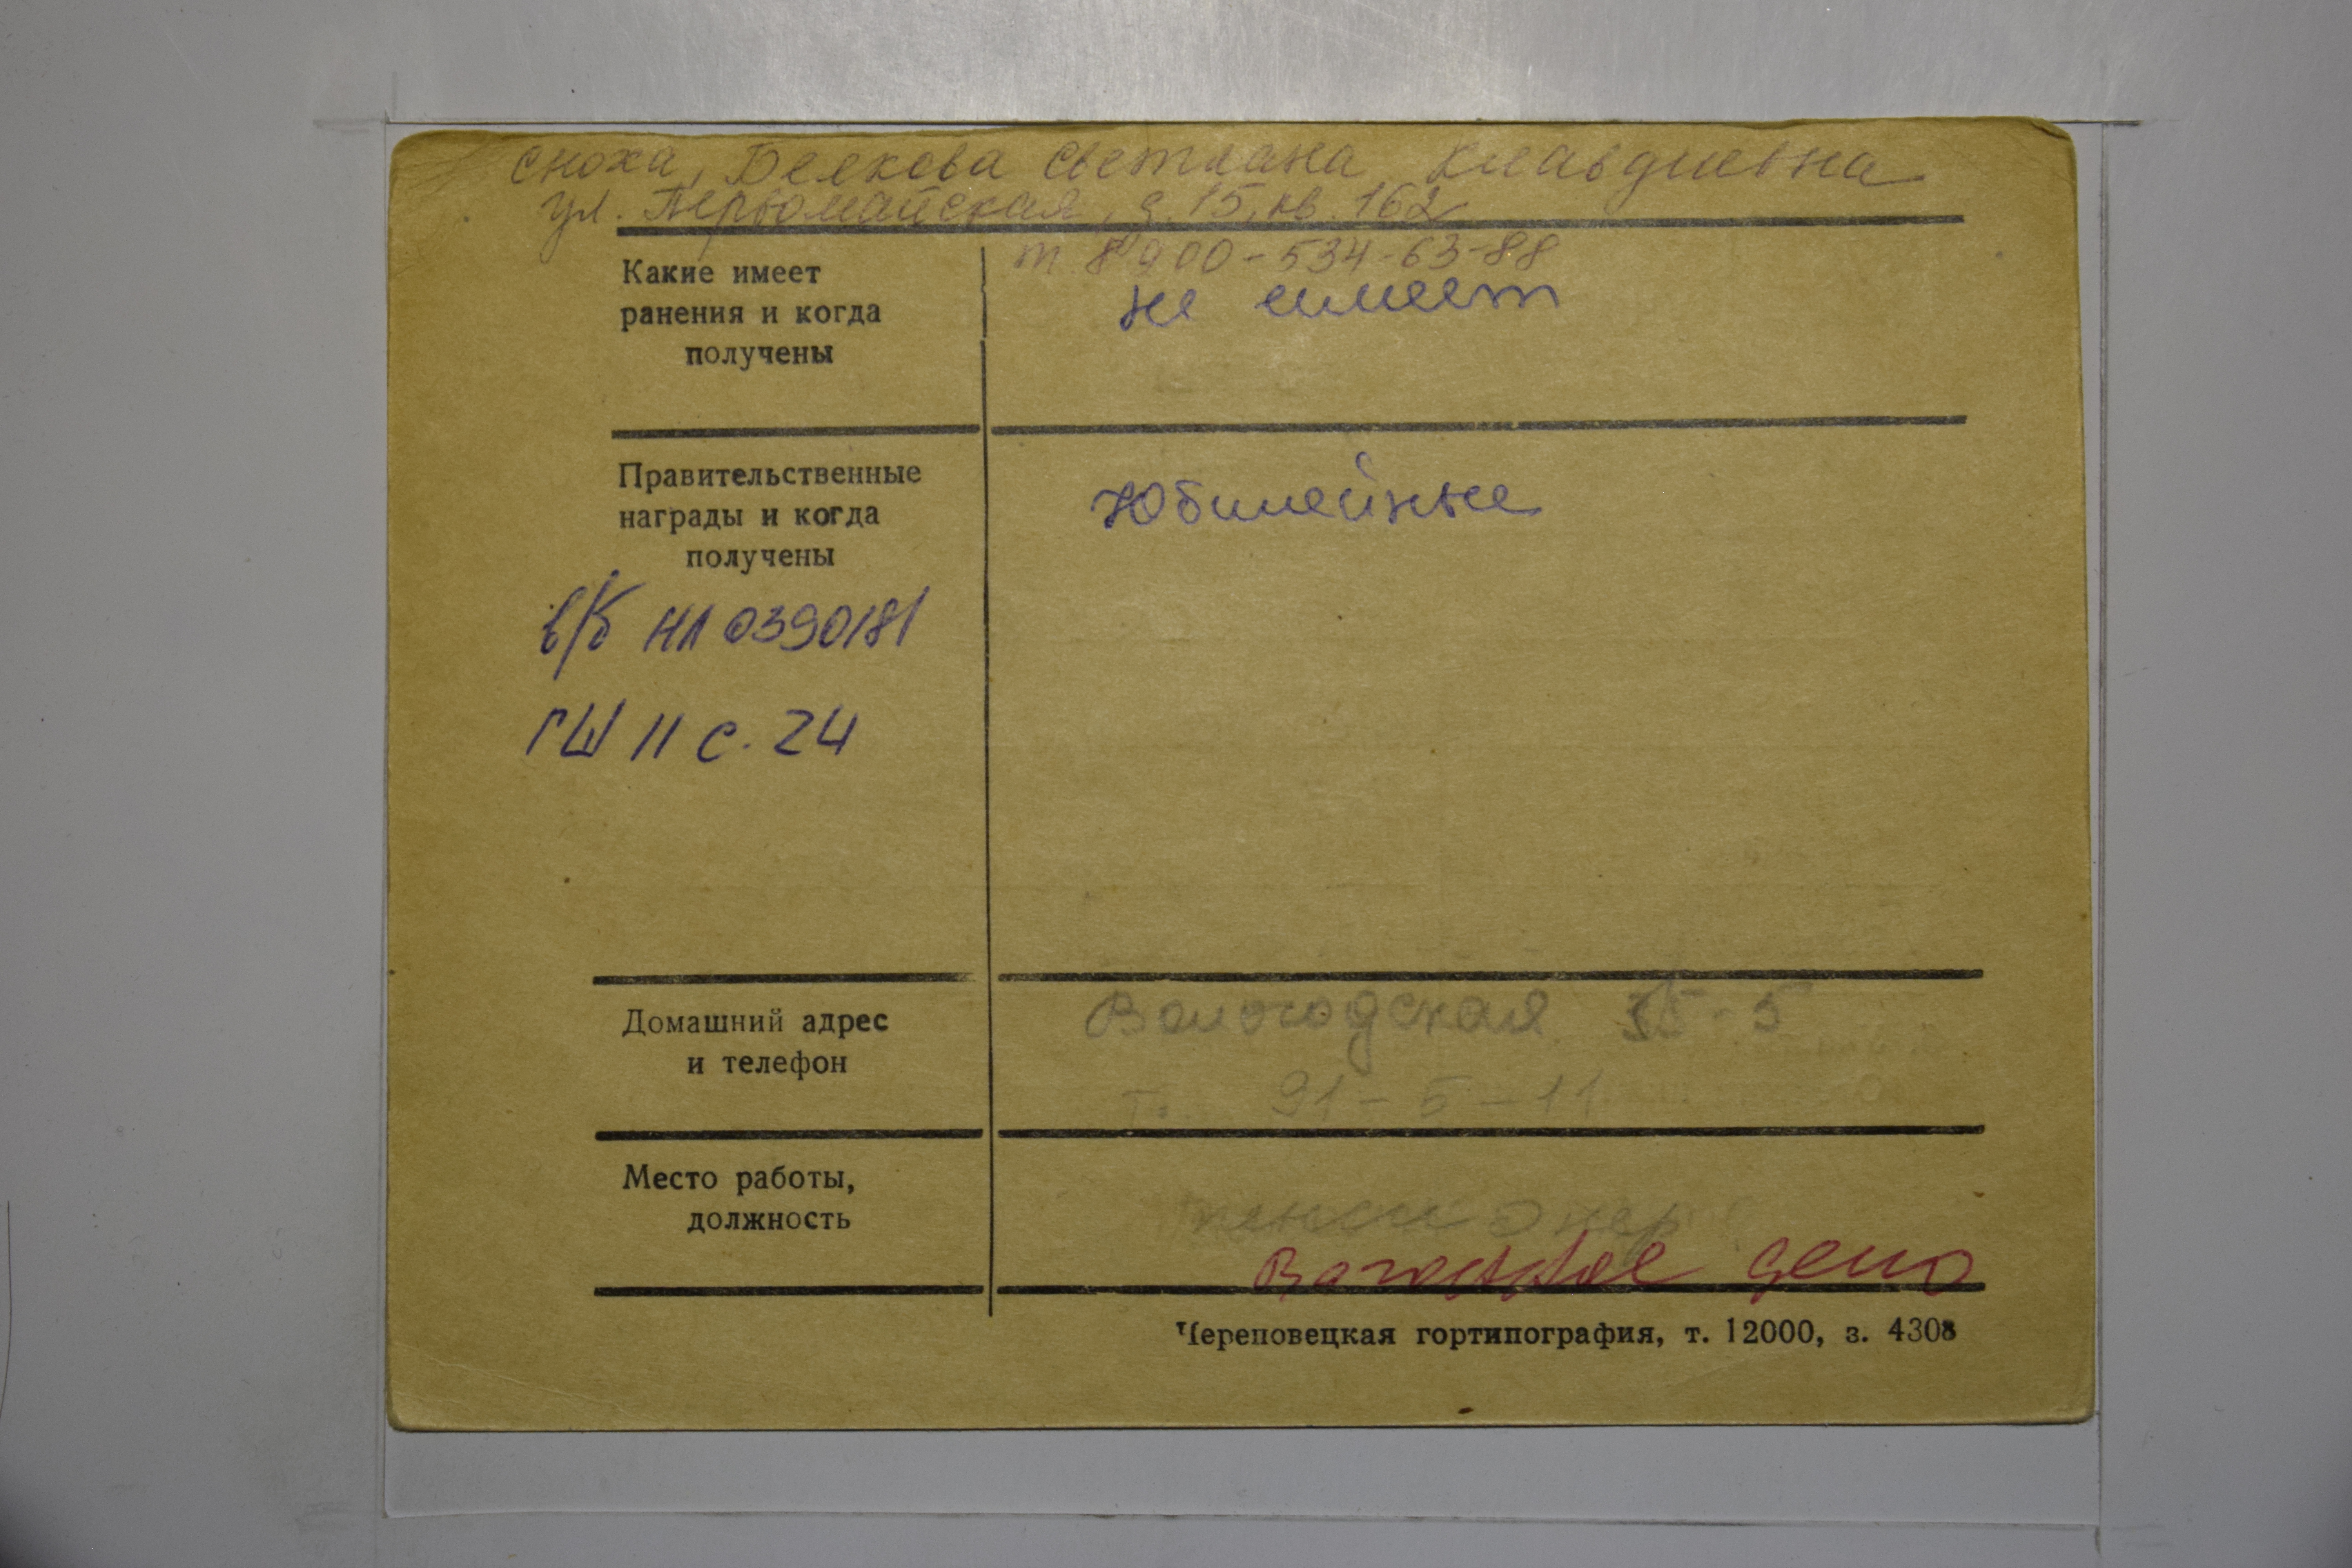 сноха, Белкова Светлана Клавдиевна
ул. Первомайская, д. 15, кв. 162
т. 8 900-534-63-88
Какие имеет
ранения и когда
получены
не имеет
Правительственные
награды и когда
получены
Юбилейные
в/б НЛ 0390181
ГШ 11 с. 24
Домашний адрес
и телефон
Вологодская 35-5
т. 91-5-11
Место работы,
должность
пенсионер
Вагонное депо
Череповецкая гортипография, т. 12000, з. 4308